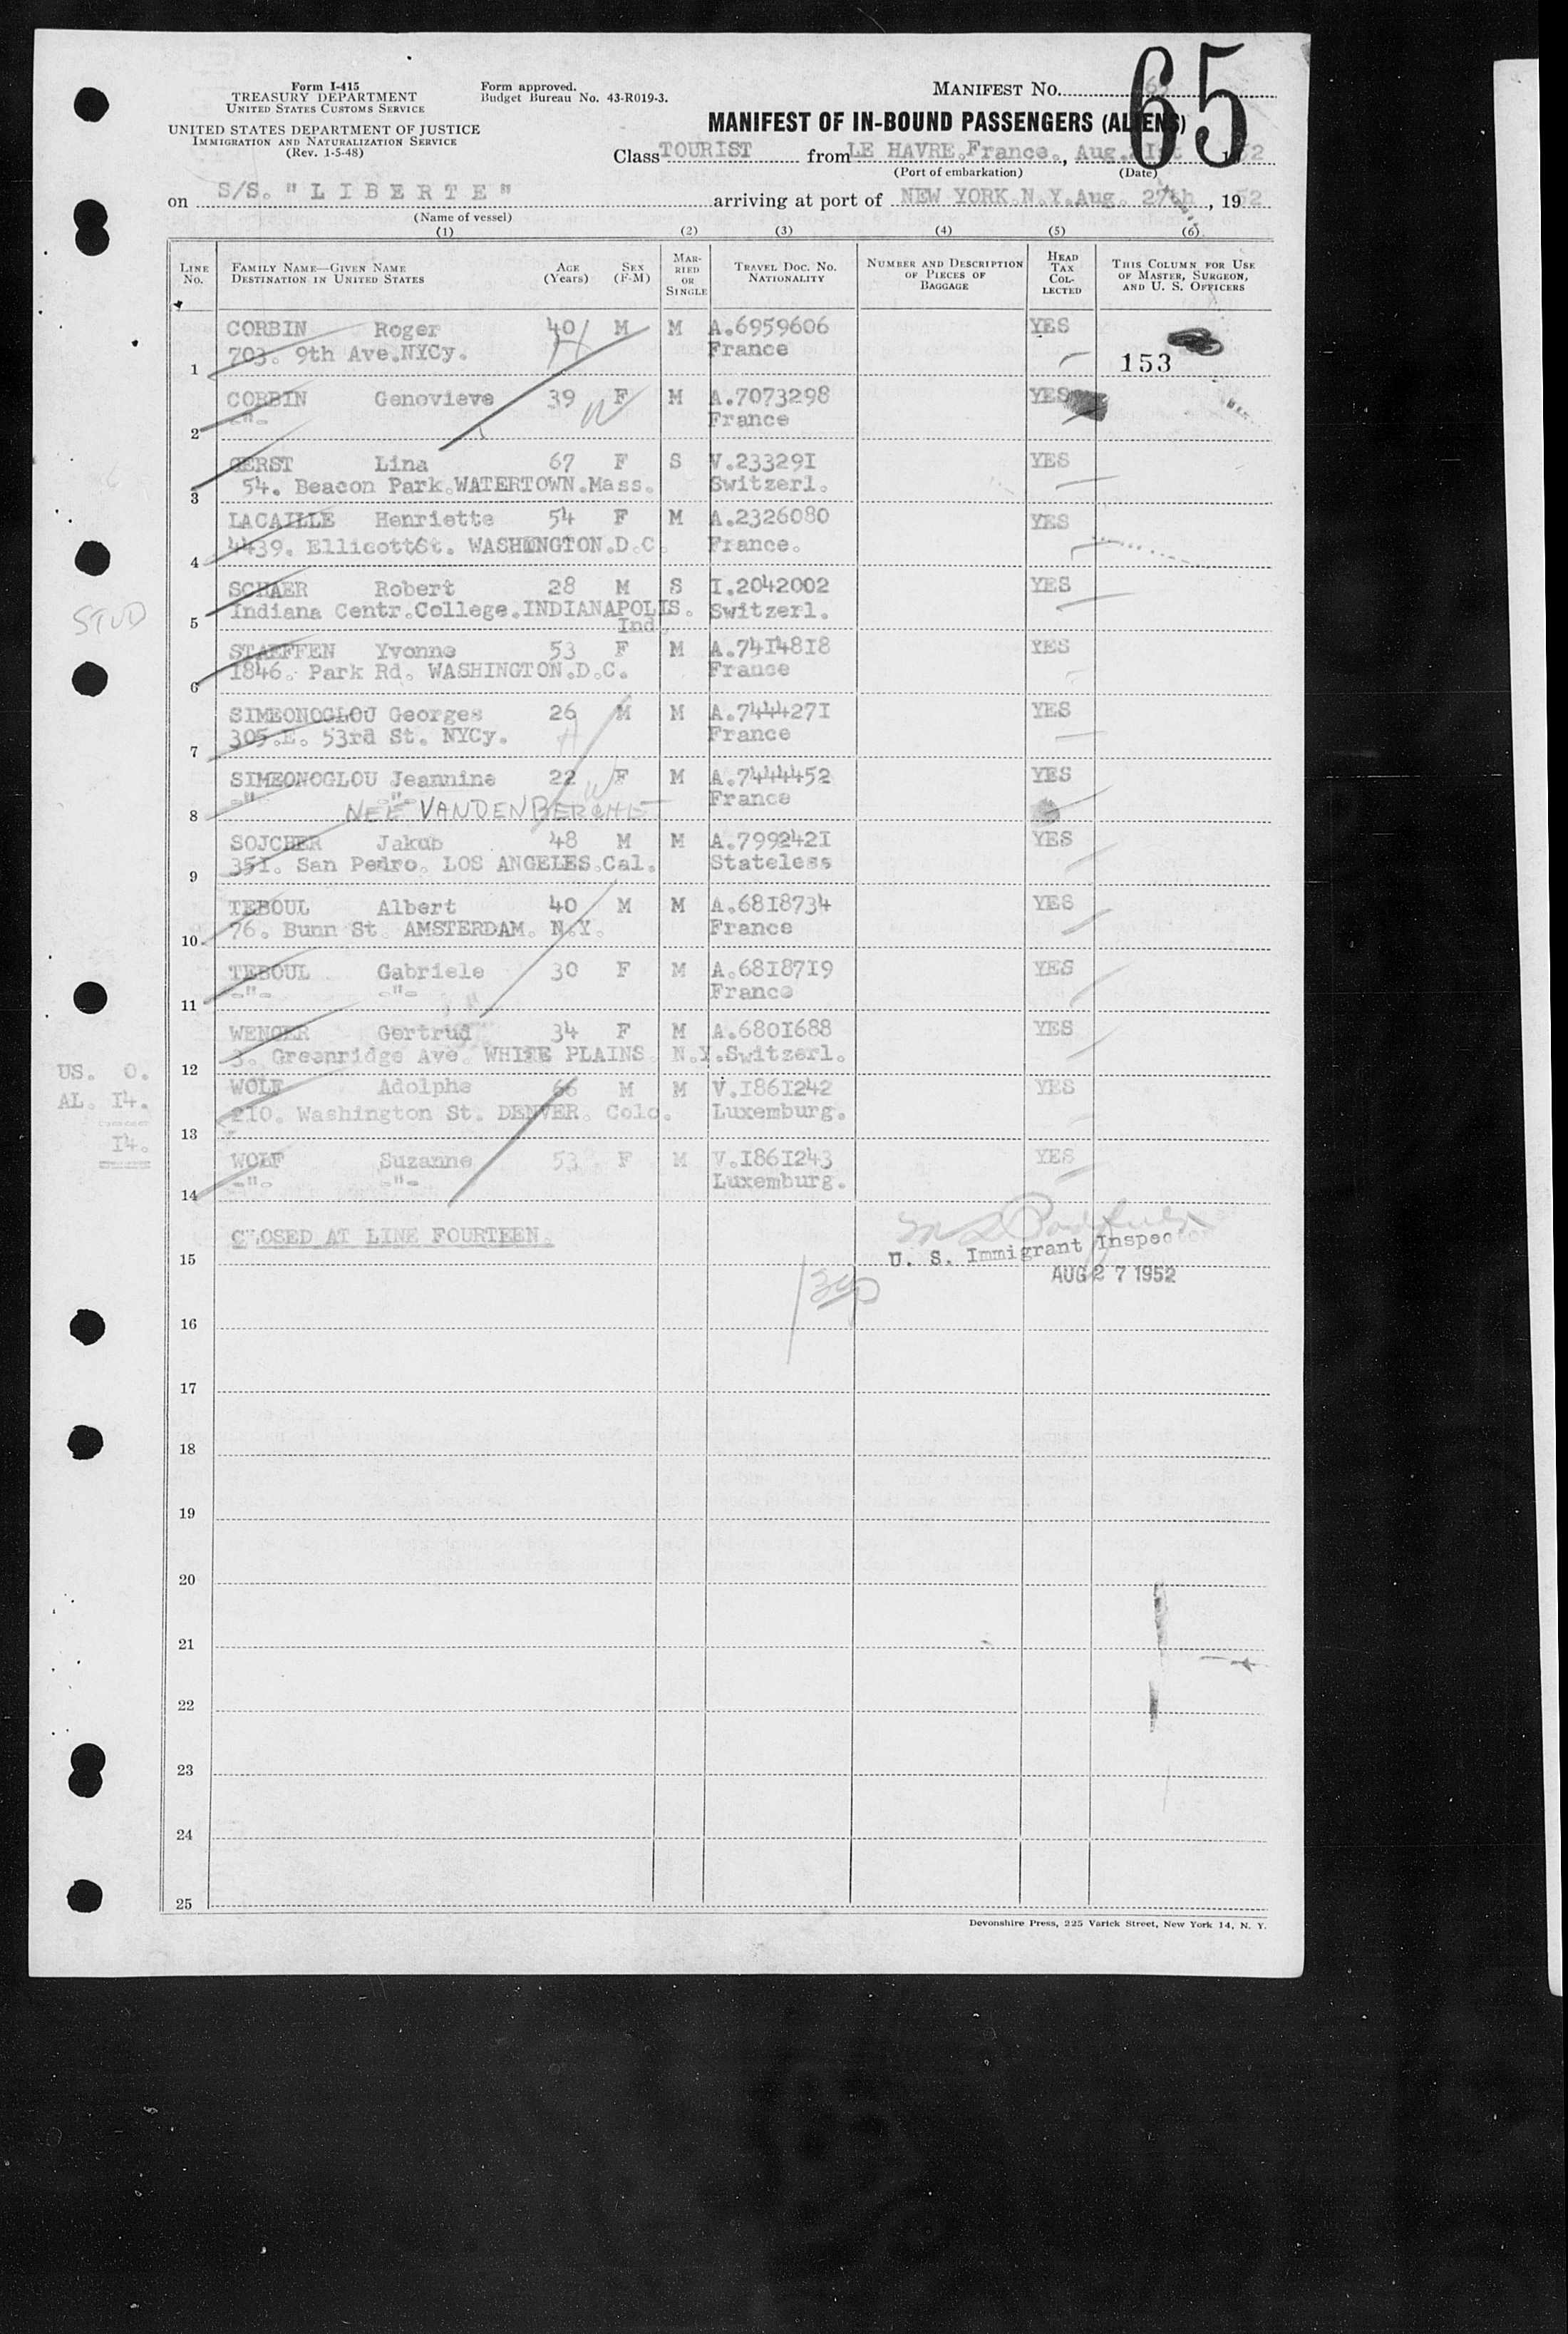 65
Form I-415
TREASURY DEPARTMENT
UNITED STATES CUSTOMS SERVICE
UNITED STATES DEPARTMENT OF JUSTICE
IMMIGRATION AND NATURALIZATION SERVICE
(Rev. 1-5-48)
Form approved.
Budget Bureau No. 43-R019-3.
MANIFEST NO.
MANIFEST OF IN-BOUND PASSENGERS (ALIENS)
Class TOURIST from LE HAVRE.France., Aug. 21st 1952
(Port of embarkation) (Date)
on S/S. "LIBERTE" arriving at port of NEW YORK.N.Y.Aug. 27th, 1952
(Name of vessel)
(1) (2) (3) (4) (5) (6)
LINE NO. FAMILY NAME—GIVEN NAME DESTINATION IN UNITED STATES AGE (Years) SEX (F-M) MARRIED OR SINGLE TRAVEL DOC. NO. NATIONALITY NUMBER AND DESCRIPTION OF PIECES OF BAGGAGE HEAD TAX COLLECTED THIS COLUMN FOR USE OF MASTER, SURGEON, AND U. S. OFFICERS
CORBIN Roger 40 M M A.6959606 YES
1 703. 9th Ave.NYCy. H France 153
CORBIN Genovieve 39 F M A.7073298 YES
2 -"- W France
GERST Lina 67 F S V.233291 YES
3 54. Beacon Park.WATERTOWN.Mass. Switzerl.
LACAILLE Henriette 54 F M A.2326080 YES
4 4439. EllicottSt. WASHINGTON.D.C. France.
SCHAER Robert 28 M S I.2042002 YES
STUD
5 Indiana Centr.College.INDIANAPOLIS. Switzerl.
Ind
STAEFFEN Yvonne 53 F M A.7414818 YES
6 1846. Park Rd. WASHINGTON.D.C. France
SIMEONOGLOU Georges 26 M M A.7444271 YES
7 305.E. 53rd St. NYCy. H France
SIMEONOGLOU Jeannine 22 F M A.7444452 YES
8 -"- -"- W France
NEE VANDENBERGHE
SOJCHER Jakub 48 M M A.7992421 YES
9 351. San Pedro. LOS ANGELES.Cal. Stateless
TEBOUL Albert 40 M M A.6818734 YES
10 76. Bunn St AMSTERDAM. N.Y. France
TEBOUL Gabriele 30 F M A.6818719 YES
11 -"- -"- France
WENGER Gertrud 34 F M A.6801688 YES
12 3. Greenridge Ave. WHITE PLAINS. N.Y.Switzerl.
US. 0.
AL. 14.
14.
WOLF Adolphe 66 M M V.1861242 YES
13 210. Washington St. DENVER. Colo. Luxemburg.
WOLF Suzanne 53 F M V.1861243 YES
14 -"- -"- Luxemburg.
15 CLOSED AT LINE FOURTEEN.
U. S. Immigrant Inspector
AUG 27 1952
16
17
18
19
20
21
22
23
24
25
Devonshire Press, 225 Varick Street, New York 14, N. Y.